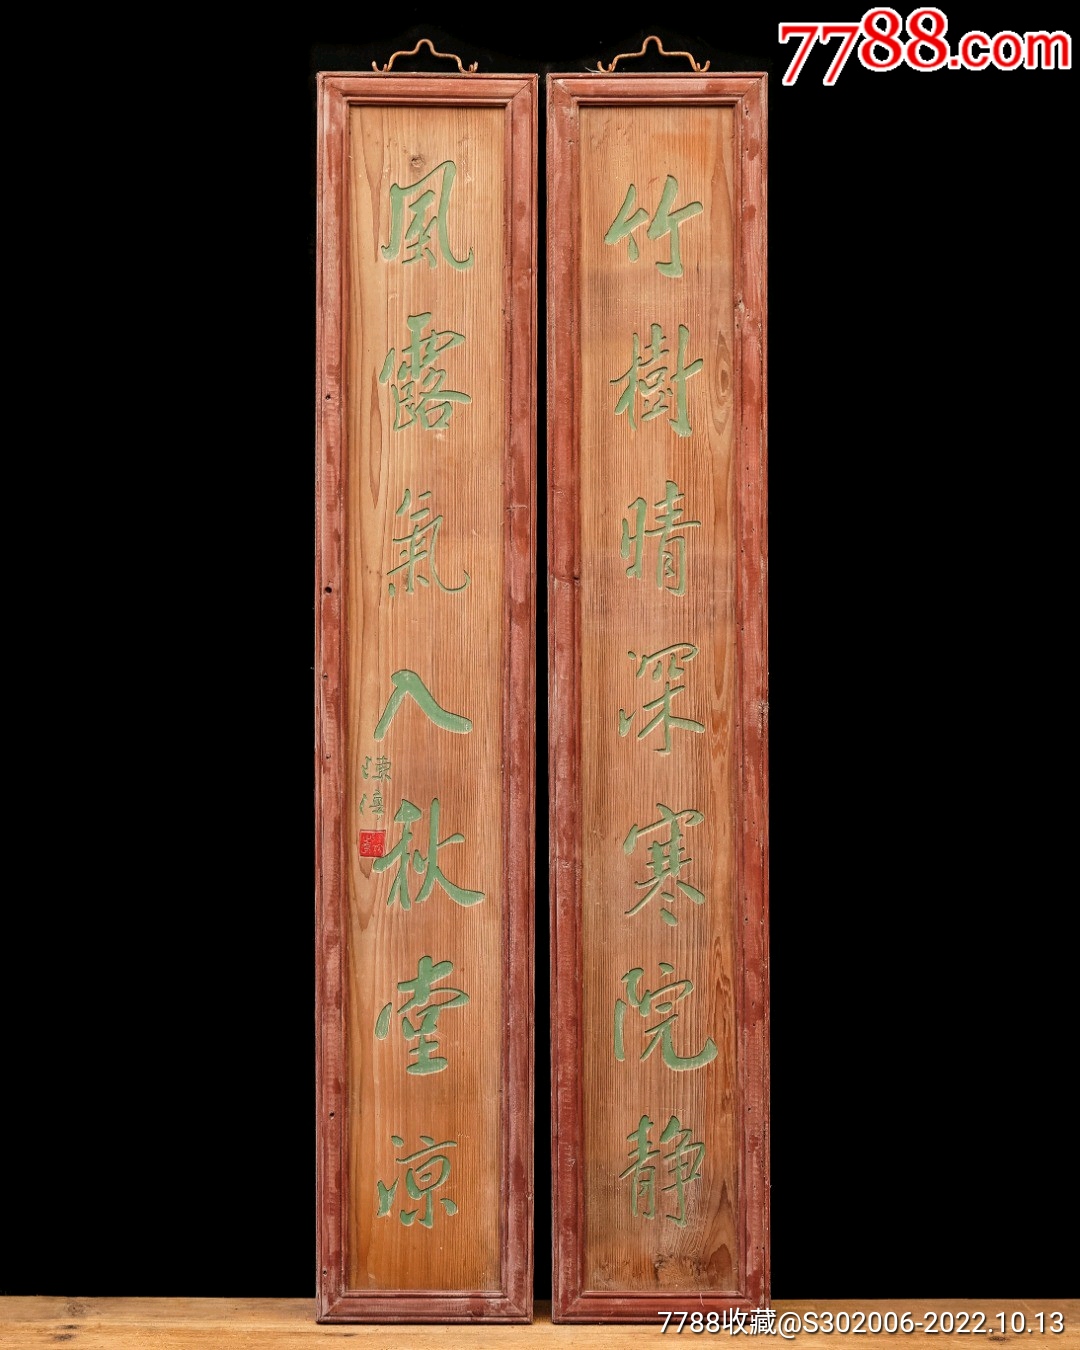 7788.com
竹樹晴深寒院静
風露氣入秋堂凉
7788收藏@S302006-2022.10.13